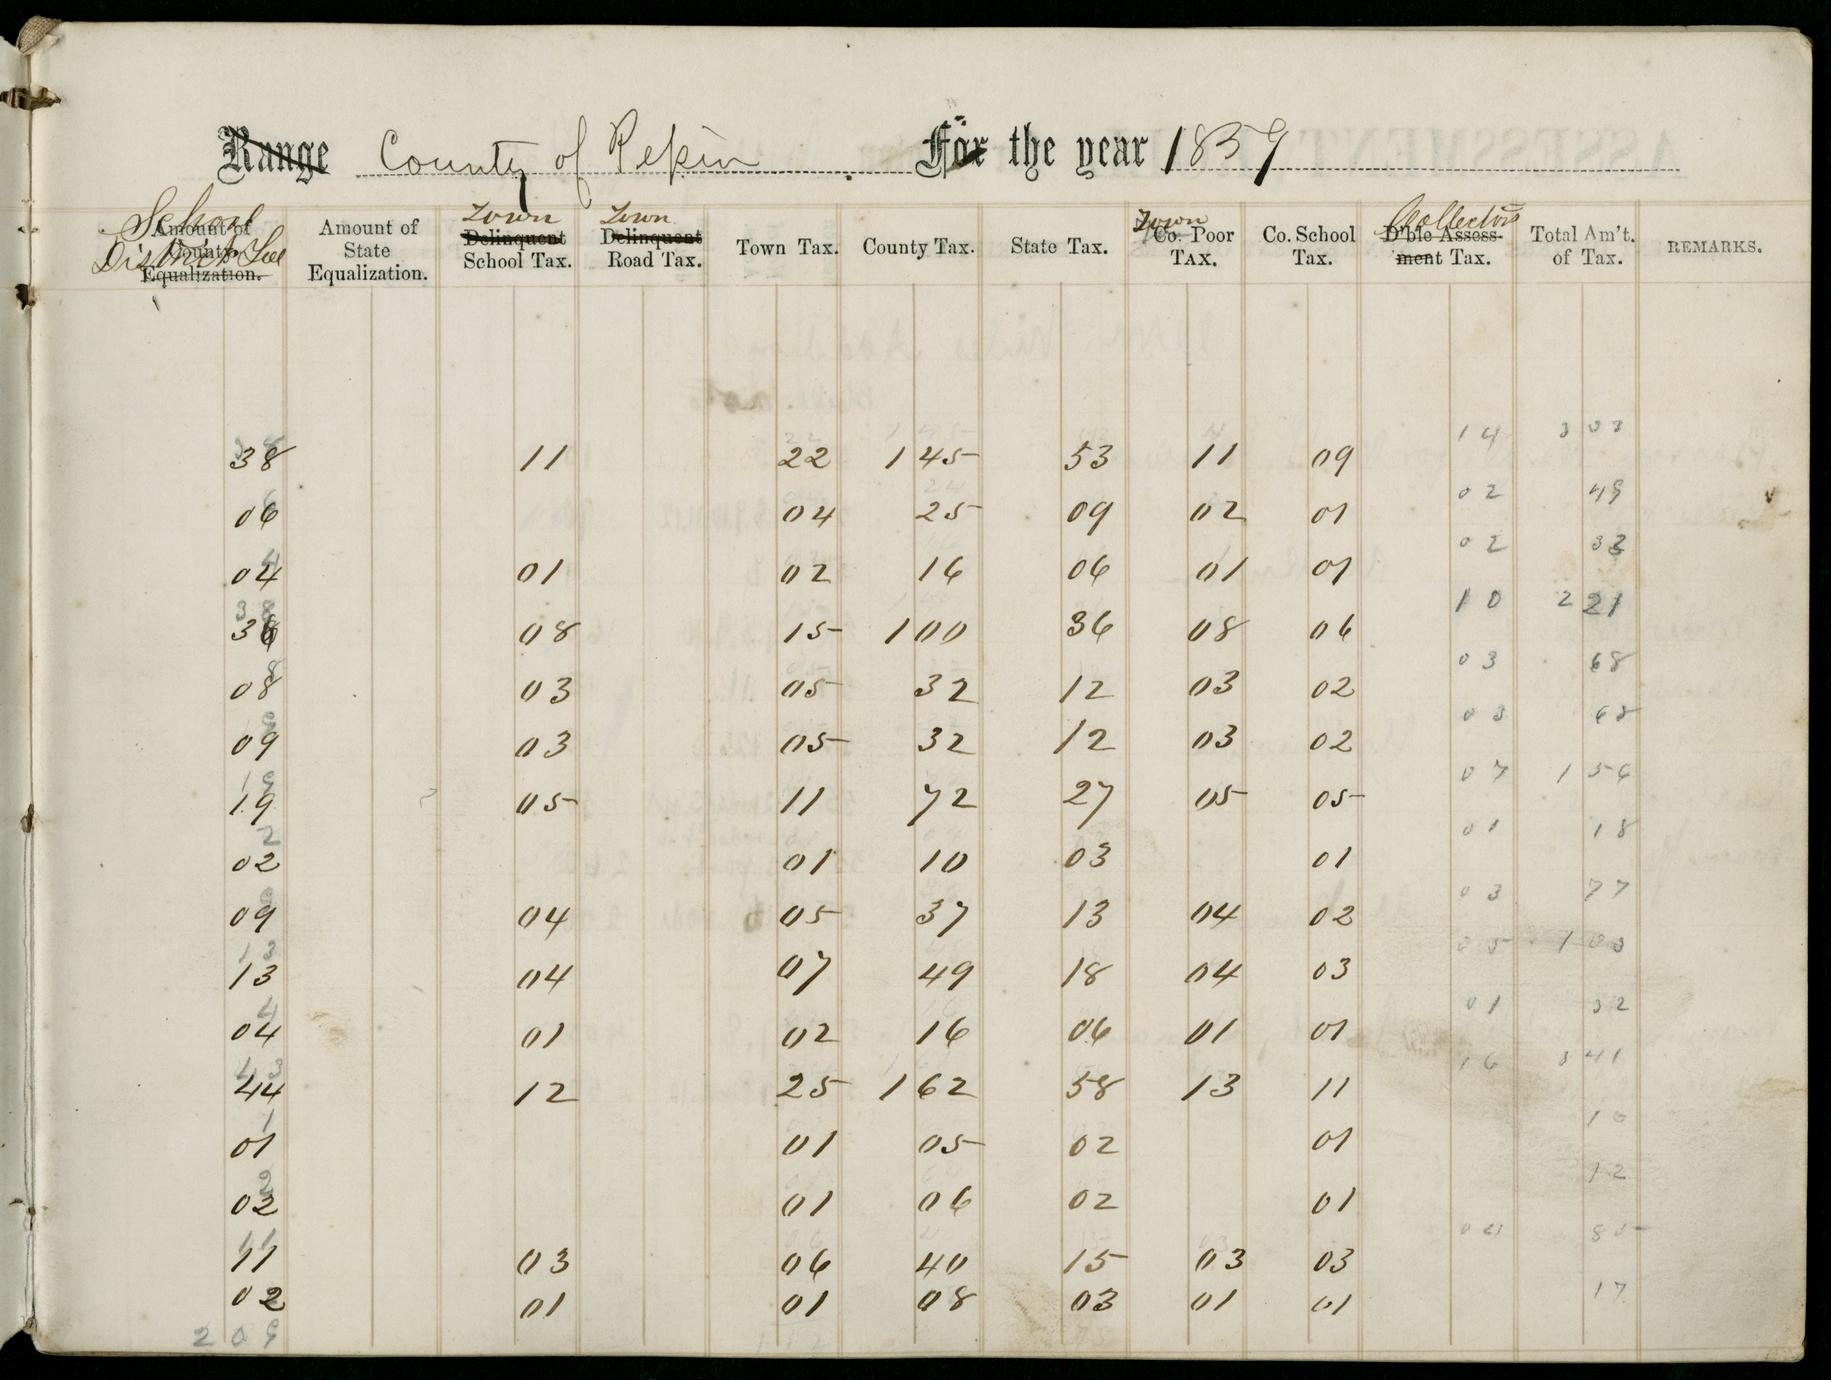 Range County of Pepin For the year 1859
School District Tax Amount of County Equalization. Amount of State Equalization. Town Delinquent School Tax. Town Delinquent Road Tax. Town Tax. County Tax. State Tax. Town Co. Poor TAX. Co. School Tax. Collectors D'ble Assess-ment Tax. Total Am't. of Tax. REMARKS.
38 11 22 145 53 11 09 14 3 03
06 04 25 09 02 01 02 49
04 01 02 16 06 01 01 02 33
36 08 15 100 36 08 06 10 2 21
08 03 05 32 12 03 02 03 68
09 03 05 32 12 03 02 03 68
19 05 11 72 27 05 05 07 1 56
02 01 10 03 01 01 18
09 04 05 37 13 04 02 03 77
13 04 07 49 18 04 03 05 1 03
04 01 02 16 06 01 01 01 32
44 12 25 162 58 13 11 16 3 41
01 01 05 02 01 10
02 01 06 02 01 12
11 03 06 40 15 03 03 04 85
02 01 01 08 03 01 01 17
2 09